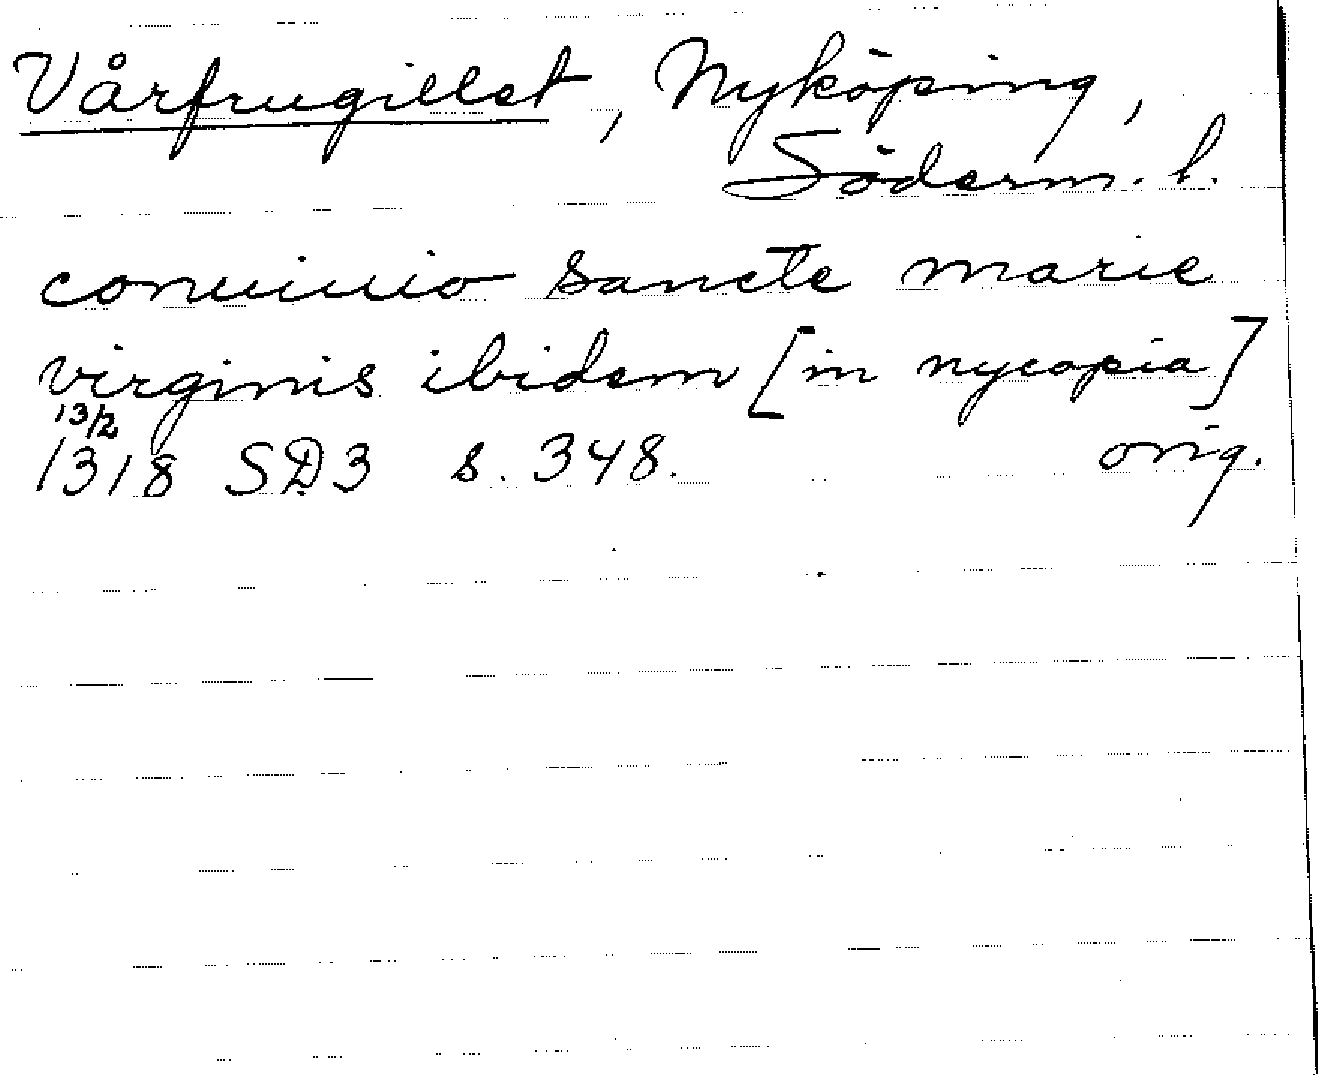 Vårfrugillet, Nyköping,
Söderm. l.
conuiuio sancte marie
virginis ibidem [in nycopia]
13/2
1318 SD3 s. 348. orig.